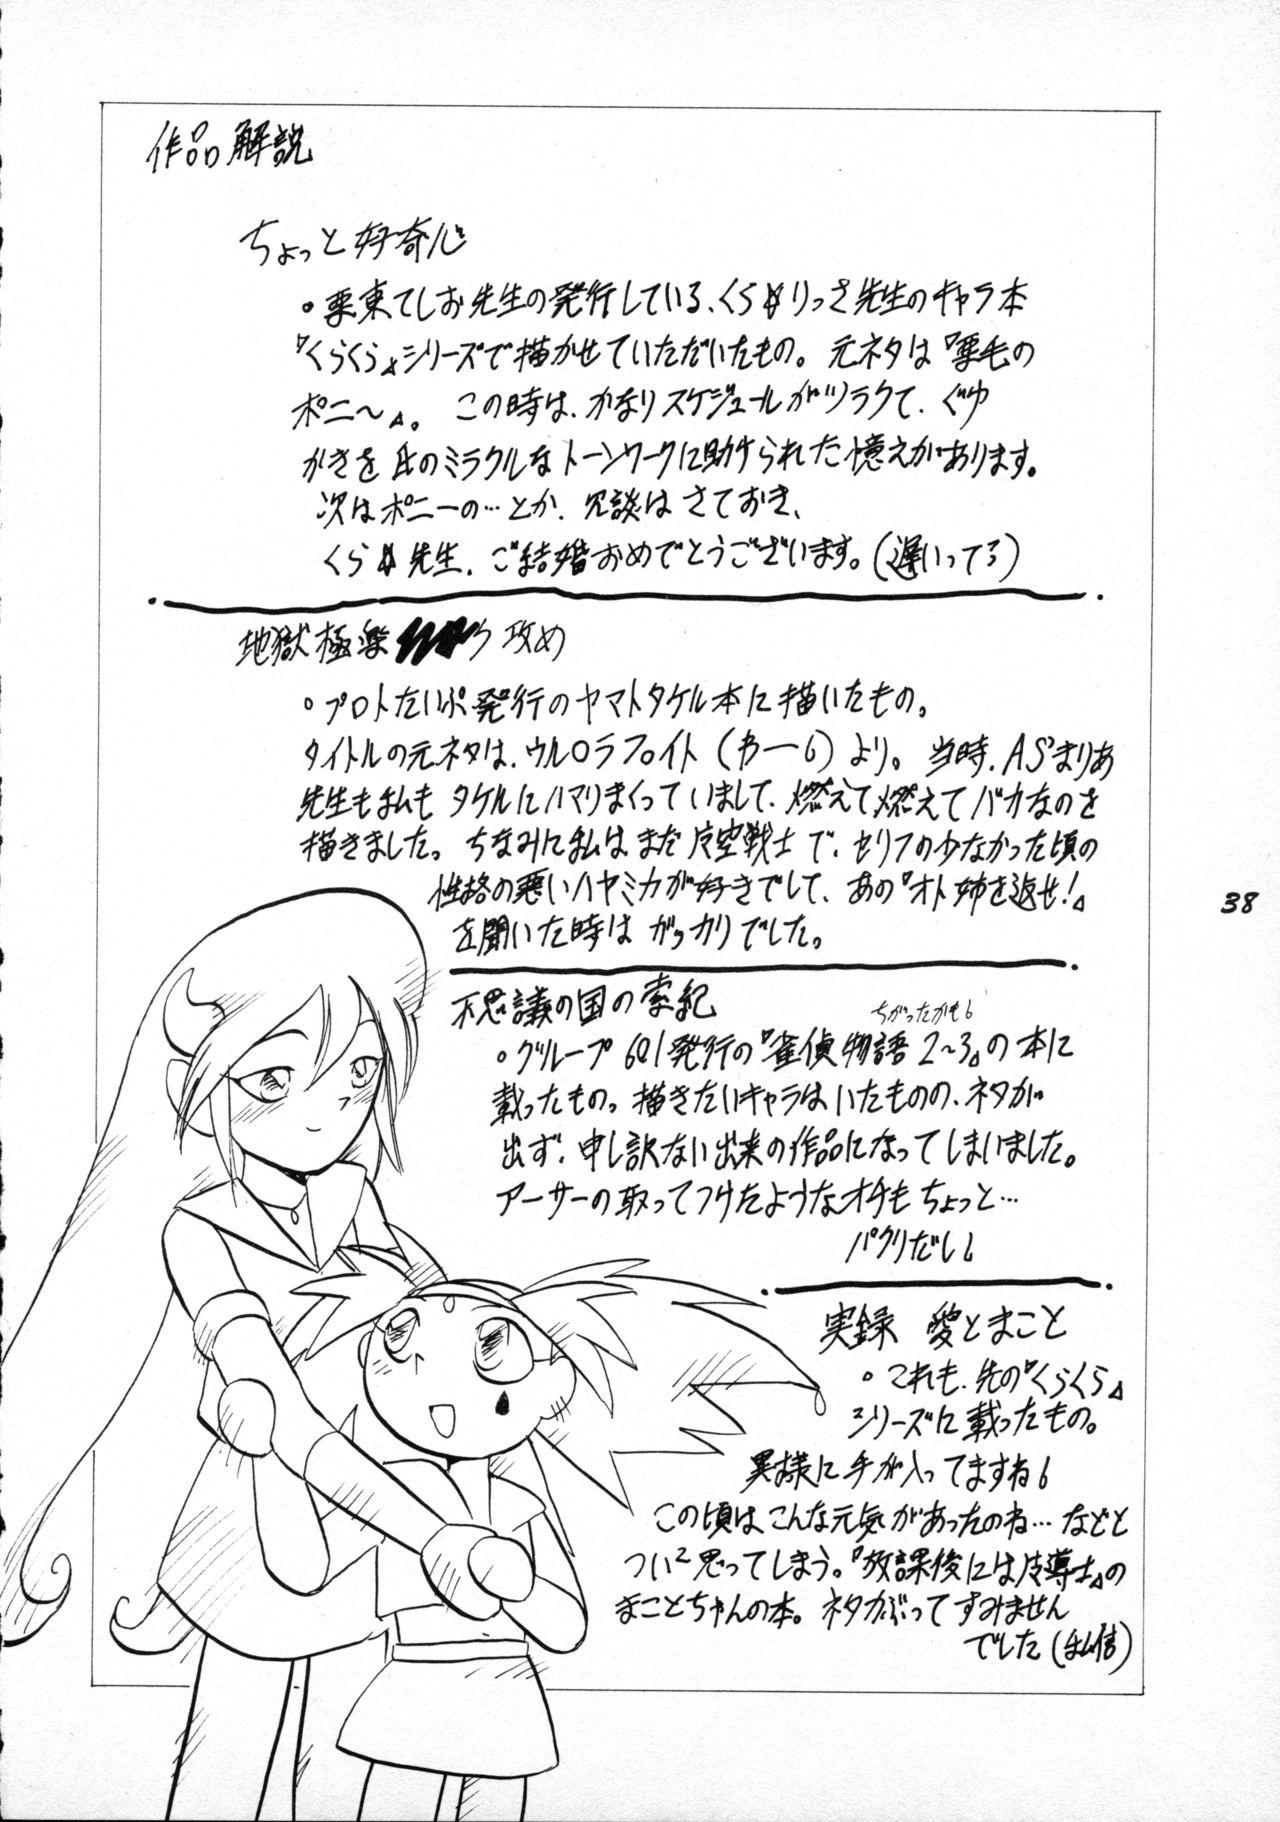 作品解説
ちょっと好奇心
。栗東てしお先生の発行している、くら☆りっさ先生のキャラ本
『くらくら』シリーズで描かせていただいたもの。元ネタは『栗毛の
ポニ〜』。この時は、かなりスケジュールがツラクて、ぐゆ
かきを氏のミラクルなトーンワークに助けられた憶えがあります。
次はポニーの…とか、冗談はさておき、
くら☆先生、ご結婚おめでとうございます。(遅いってろ)
地獄極楽 攻め
。プロトたいぷ発行のヤマトタケル本に描いたもの。
タイトルの元ネタは、ウル〇ラファイト より。当時、AS'まりあ
先生も私もタケルにハマりまくっていまして、燃えて燃えてバカなのを
描きました。ちなみに私はまだ 空戦士で、セリフの少なかった頃の
性格の悪いハヤミカが好きでして、あの『オト姉を返せ!』
を聞いた時はガッカリでした。
不思議の国の索紀
ちがったかも
。グループ601発行の『雀偵物語2〜3』の本に
載ったもの。描きたいキャラはいたものの、ネタが
出ず、申し訳ない出来の作品になってしまいました。
アーサーの取ってつけたようなオチもちょっと…
パクリだし
実録 愛とまこと
。これも、先の『くらくら』
シリーズに載ったもの。
異様に手が入ってますね
この頃はこんな元気があったのね…などと
つい²思ってしまう。『放課後には 導士』の
まことちゃんの本。ネタかぶってすみません
でした
38